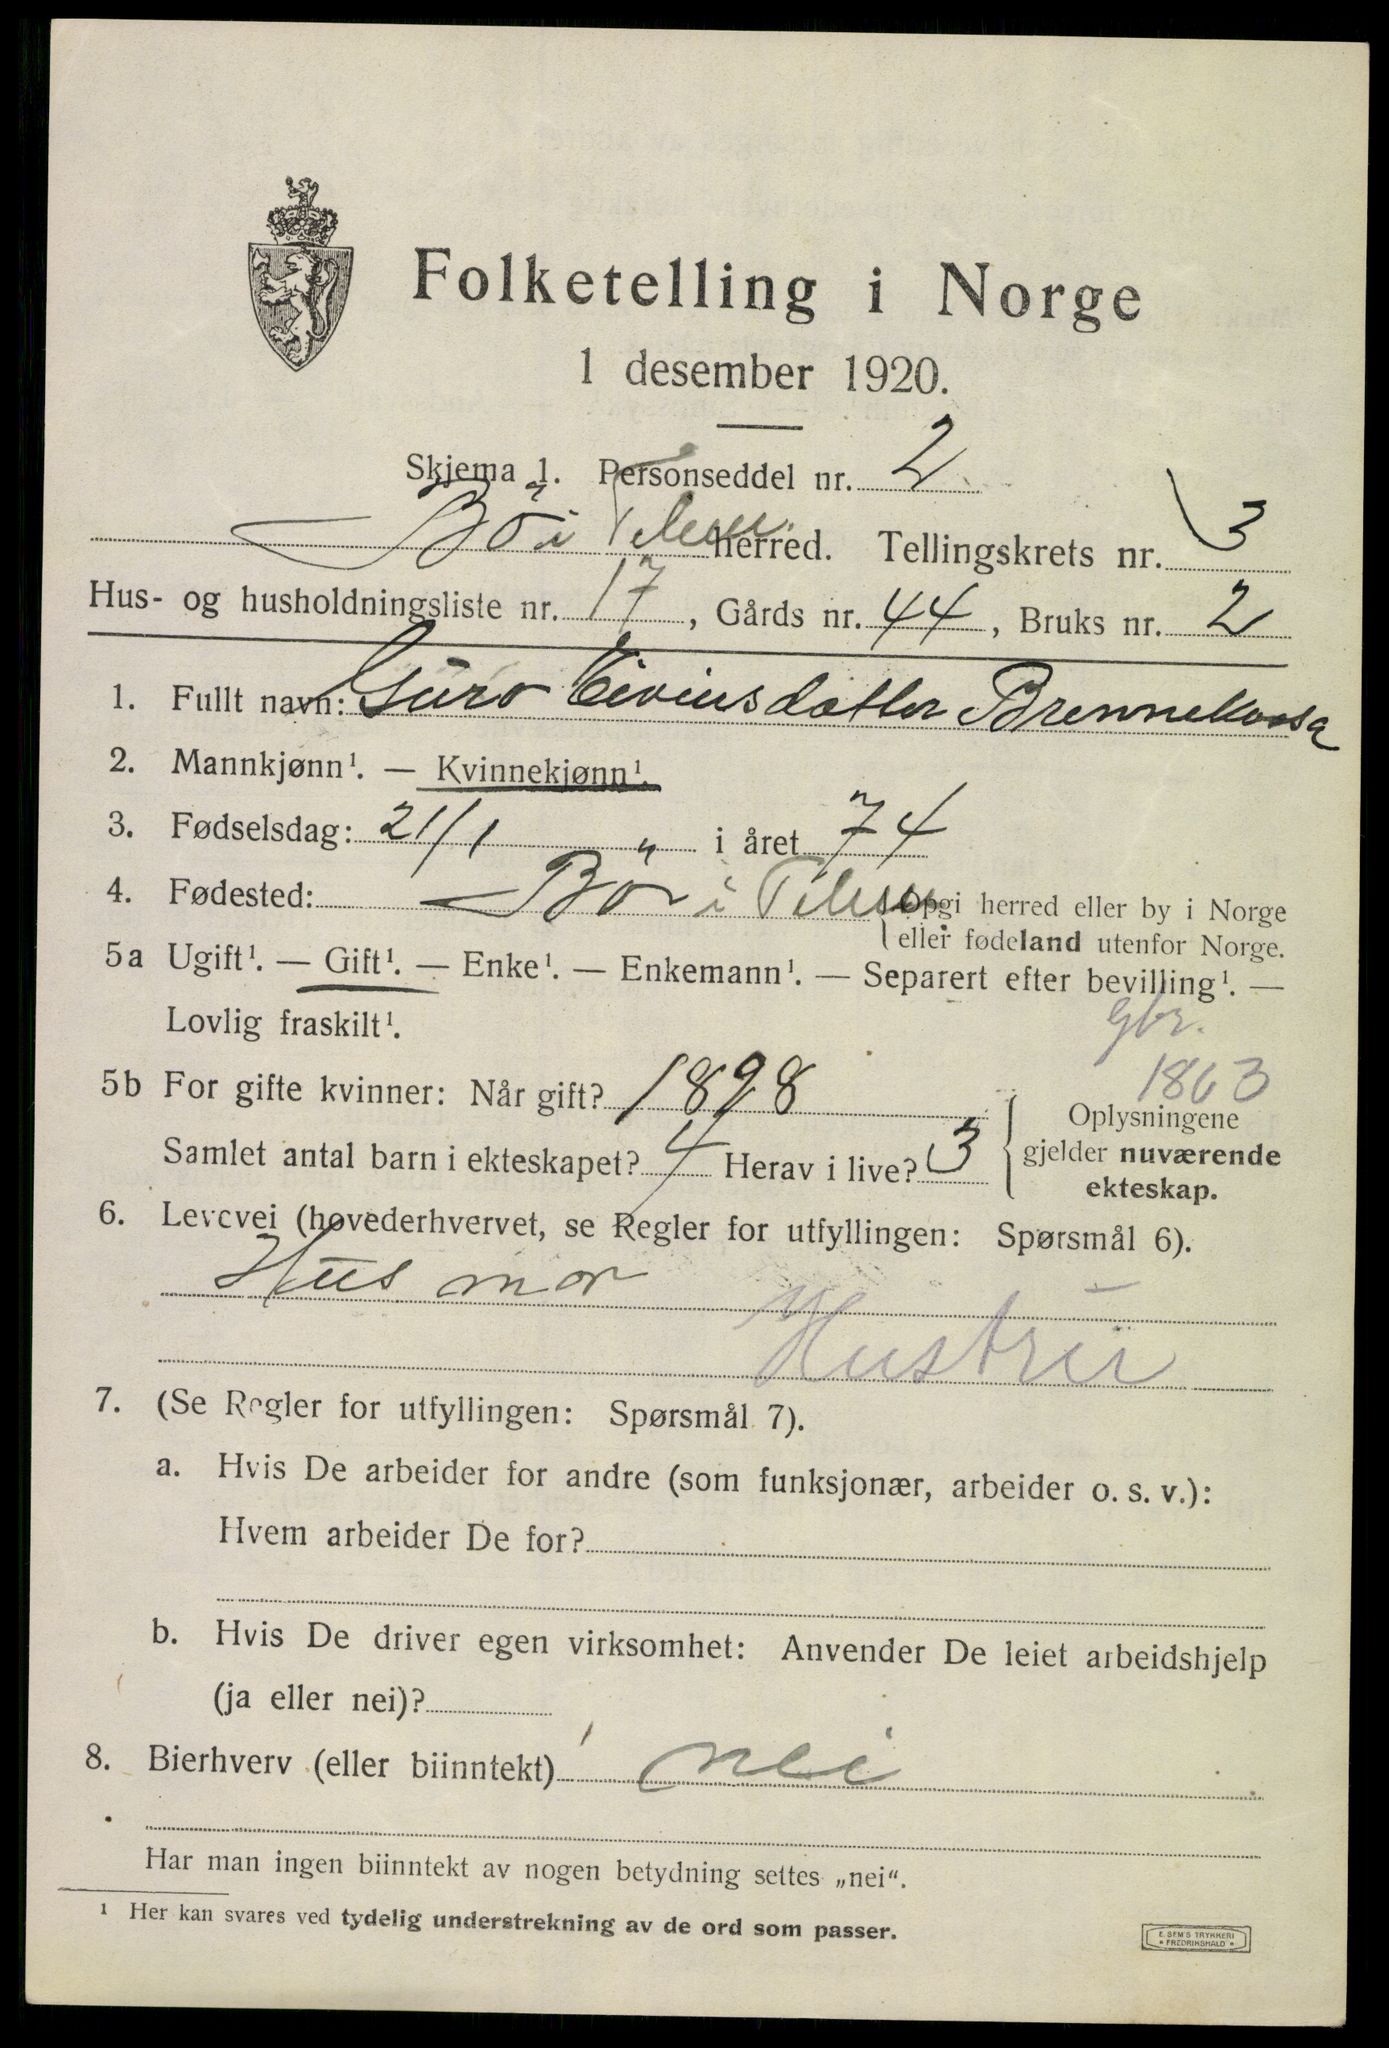 Folketelling i Norge
1 desember 1920.
Skjema 1. Personseddel nr. 2
Bö i Telem. herred. Tellingskrets nr. 3
Hus- og husholdningsliste nr. 17, Gårds nr. 44, Bruks nr. 2
1. Fullt navn: Guro Eivinsdatter
2. Mannkjønn¹. — Kvinnekjønn¹.
3. Fødselsdag: 21/1 „ i året 74
4. Fødested: Bö i Telem. Opgi herred eller by i Norge
eller fødeland utenfor Norge.
5a Ugift¹. — Gift¹. — Enke¹. — Enkemann¹. — Separert efter bevilling¹. —
Lovlig fraskilt¹.
Gbr.
1863
5b For gifte kvinner: Når gift? 1898
Samlet antal barn i ekteskapet? 4 Herav i live? 3
Oplysningene
gjelder nuværende
ekteskap.
6. Levevei (hovederhvervet, se Regler for utfyllingen: Spørsmål 6).
Husmor
Hustru
7. (Se Regler for utfyllingen: Spørsmål 7).
a. Hvis De arbeider for andre (som funksjonær, arbeider o. s. v.):
Hvem arbeider De for?
b. Hvis De driver egen virksomhet: Anvender De leiet arbeidshjelp
(ja eller nei)?
8. Bierhverv (eller biinntekt) nei
Har man ingen biinntekt av nogen betydning settes „nei“.
¹ Her kan svares ved tydelig understrekning av de ord som passer.
E. SEM'S TRYKKERI
* FREDRIKSHALD *